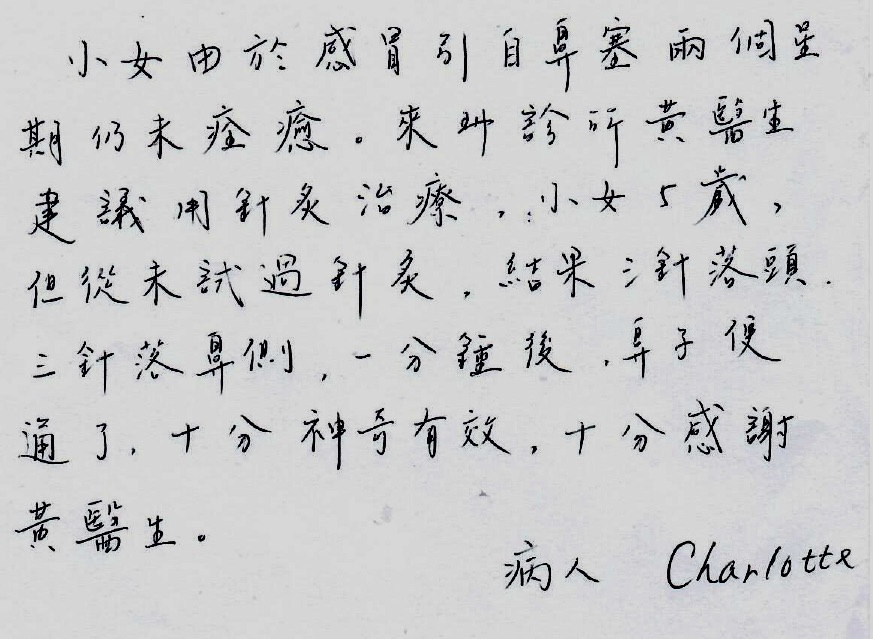 小女由於感冒引自鼻塞兩個星
期仍未痊癒。來診所黃醫生
建議用針灸治療，小女5歲，
但從未試過針灸，結果三針落頭.
三針落鼻側，一分鐘後，鼻子便
通了，十分神奇有效，十分感謝
黃醫生。
病人 Charlotte